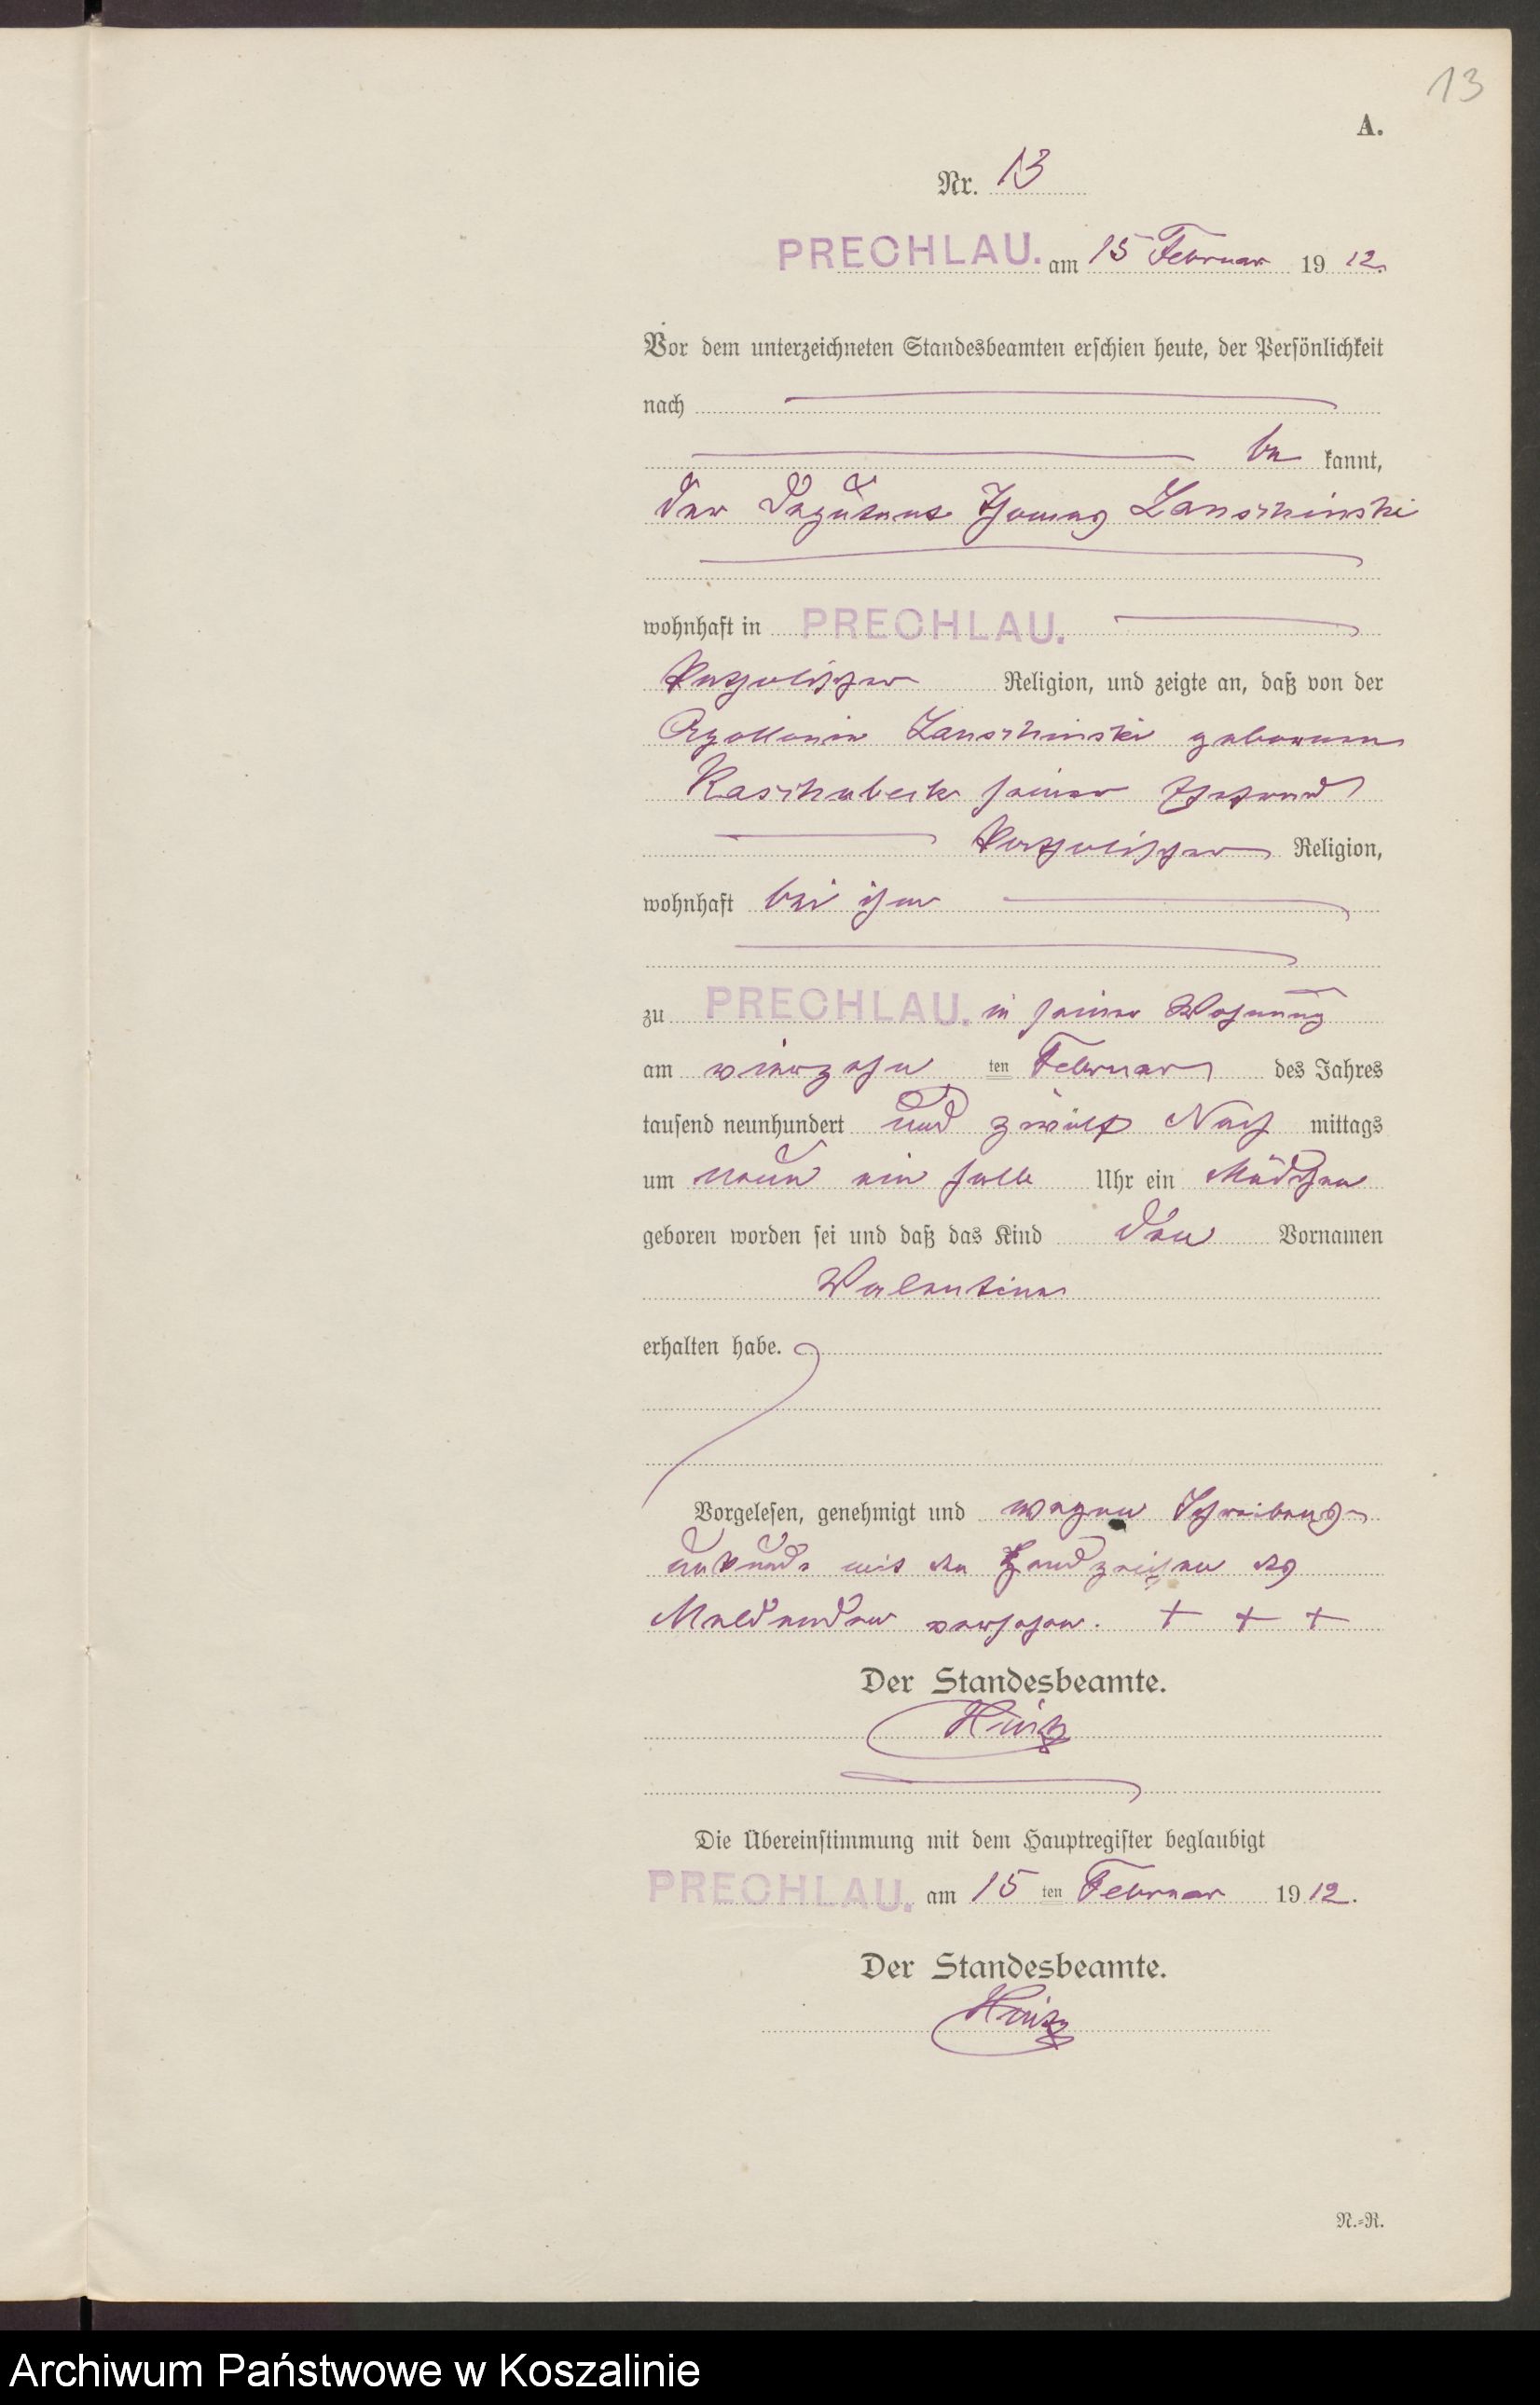 13
A.
Nr. 13
PRECHLAU. am 15 Februar 19 12.
Vor dem unterzeichneten Standesbeamten erschien heute, der Persönlichkeit
nach
be kannt,
der Deputant Thomas Lanschinski
wohnhaft in PRECHLAU.
katholischer Religion, und zeigte an, daß von der
Apollonia Lanschinski geborenen
Kaschubeck seiner Ehefrau
katholischer Religion,
wohnhaft bei ihm
zu PRECHLAU. in seiner Wohnung
am vierzehn ten Februar des Jahres
tausend neunhundert und zwölf Nach mittags
um neun ein halb Uhr ein Mädchen
geboren worden sei und daß das Kind den Vornamen
Valentina
erhalten habe.
Vorgelesen, genehmigt und wegen Schreibens-
unkunde mit den Handzeichen des
Meldenden versehen. + + +
Der Standesbeamte.
Hintz
Die Übereinstimmung mit dem Hauptregister beglaubigt
PRECHLAU. am 15 ten Februar 19 12.
Der Standesbeamte.
Hintz
N.=R.
Archiwum Państwowe w Koszalinie